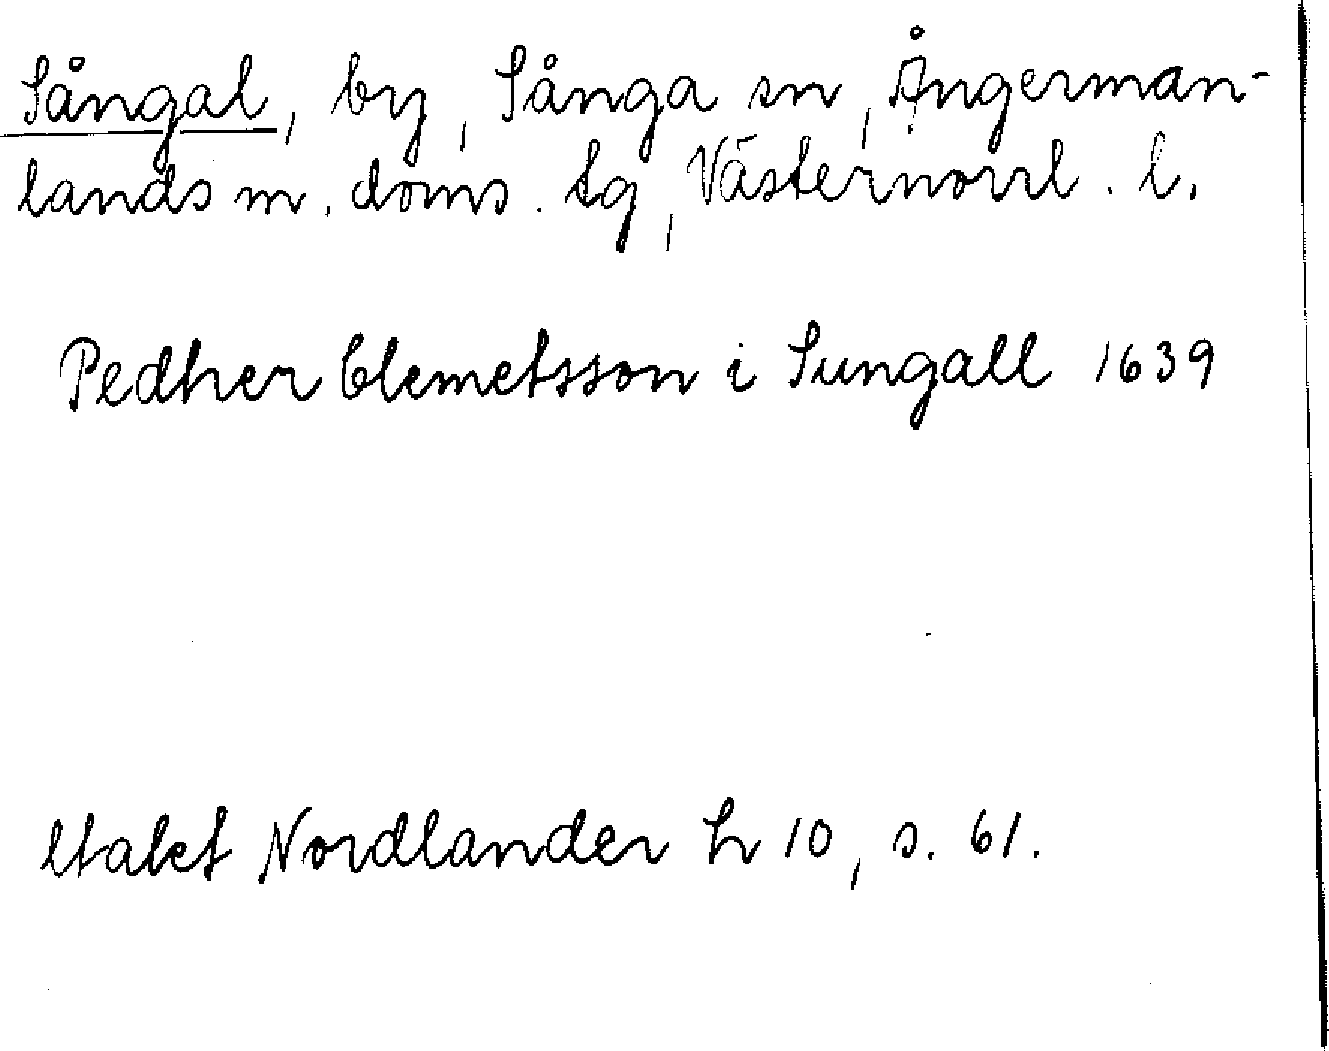 Sångal, by, Sånga sn, Ångerman-
lands m. doms. tg, Västernorrl. l.
Pedher Clemetsson i Sungall 1639
Nordlander h 10, s. 61.